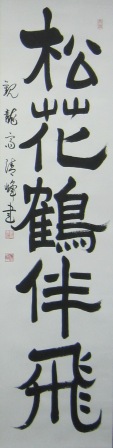 松花鶴伴飛
龍高清
書